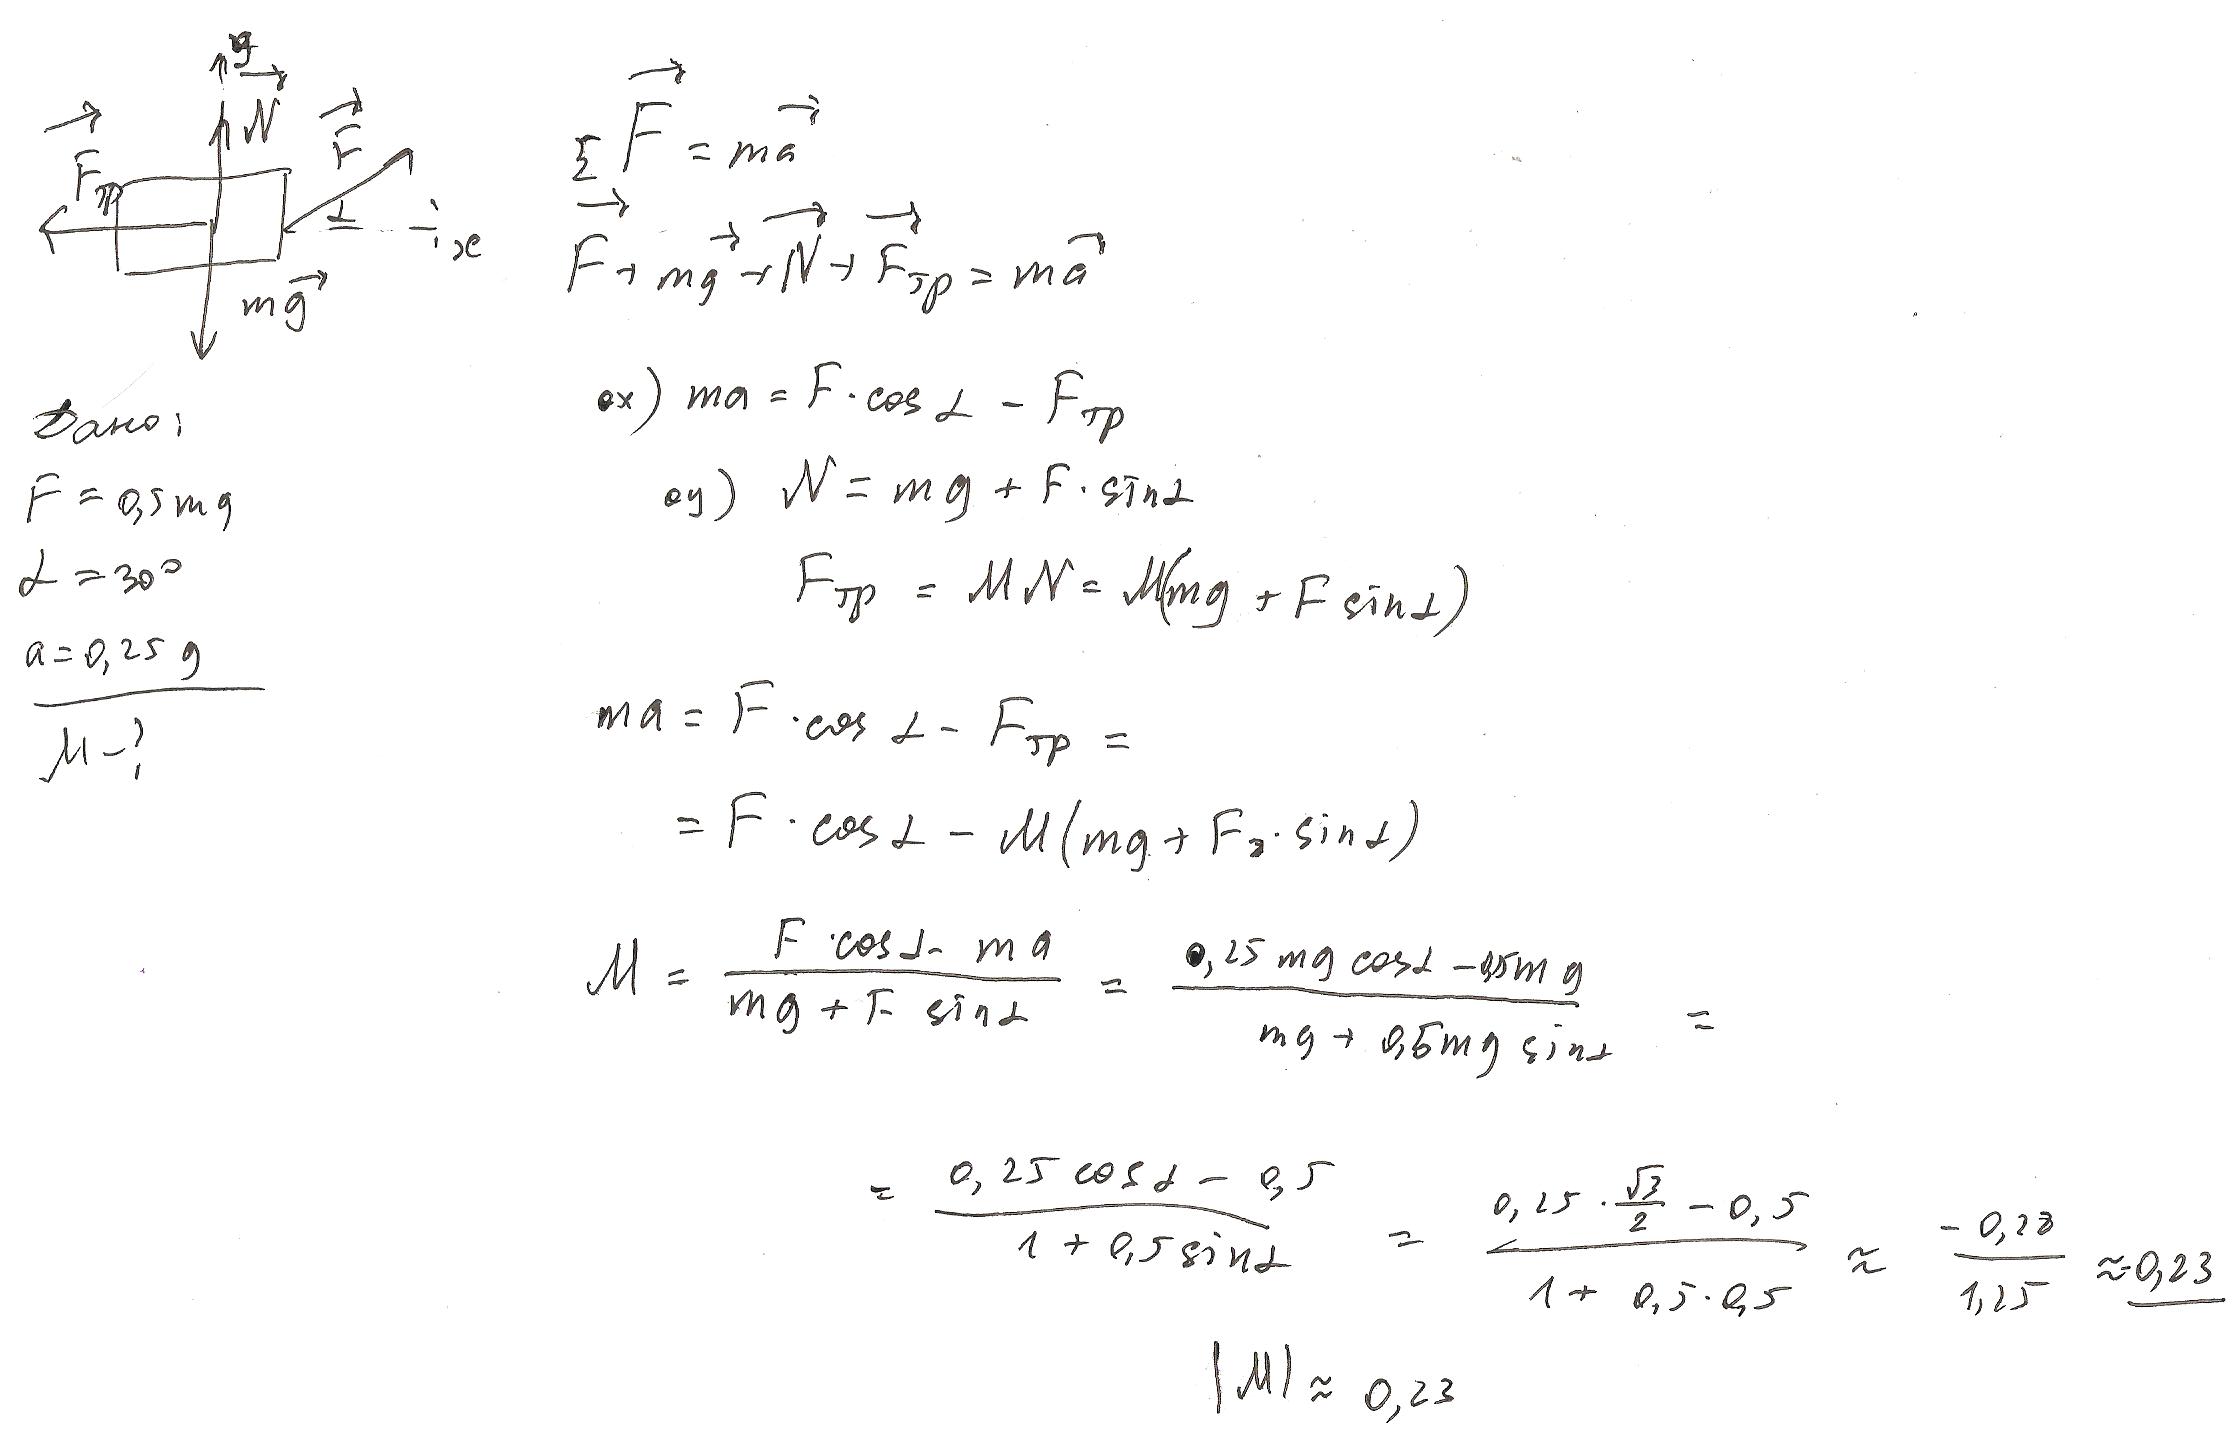 y
N⃗
F⃗
F⃗тр
α
x
mg⃗
Дано:
F = 0,5mg
α = 30°
a = 0,25g
μ - ?
ΣF⃗ = ma⃗
F⃗ + mg⃗ + N⃗ + F⃗тр = ma⃗
ox) ma = F · cos α - Fтр
oy) N = mg + F · sin α
Fтр = μN = μ(mg + F sin α)
ma = F · cos α - Fтр =
= F · cos α - μ(mg + F · sin α)
μ = (F · cos α - ma) / (mg + F sin α) = (0,25 mg cos α - 0,5mg) / (mg + 0,5mg sin α) =
= (0,25 cos α - 0,5) / (1 + 0,5 sin α) = (0,25 · √3/2 - 0,5) / (1 + 0,5 · 0,5) ≈ -0,28 / 1,25 ≈ -0,23
|μ| ≈ 0,23